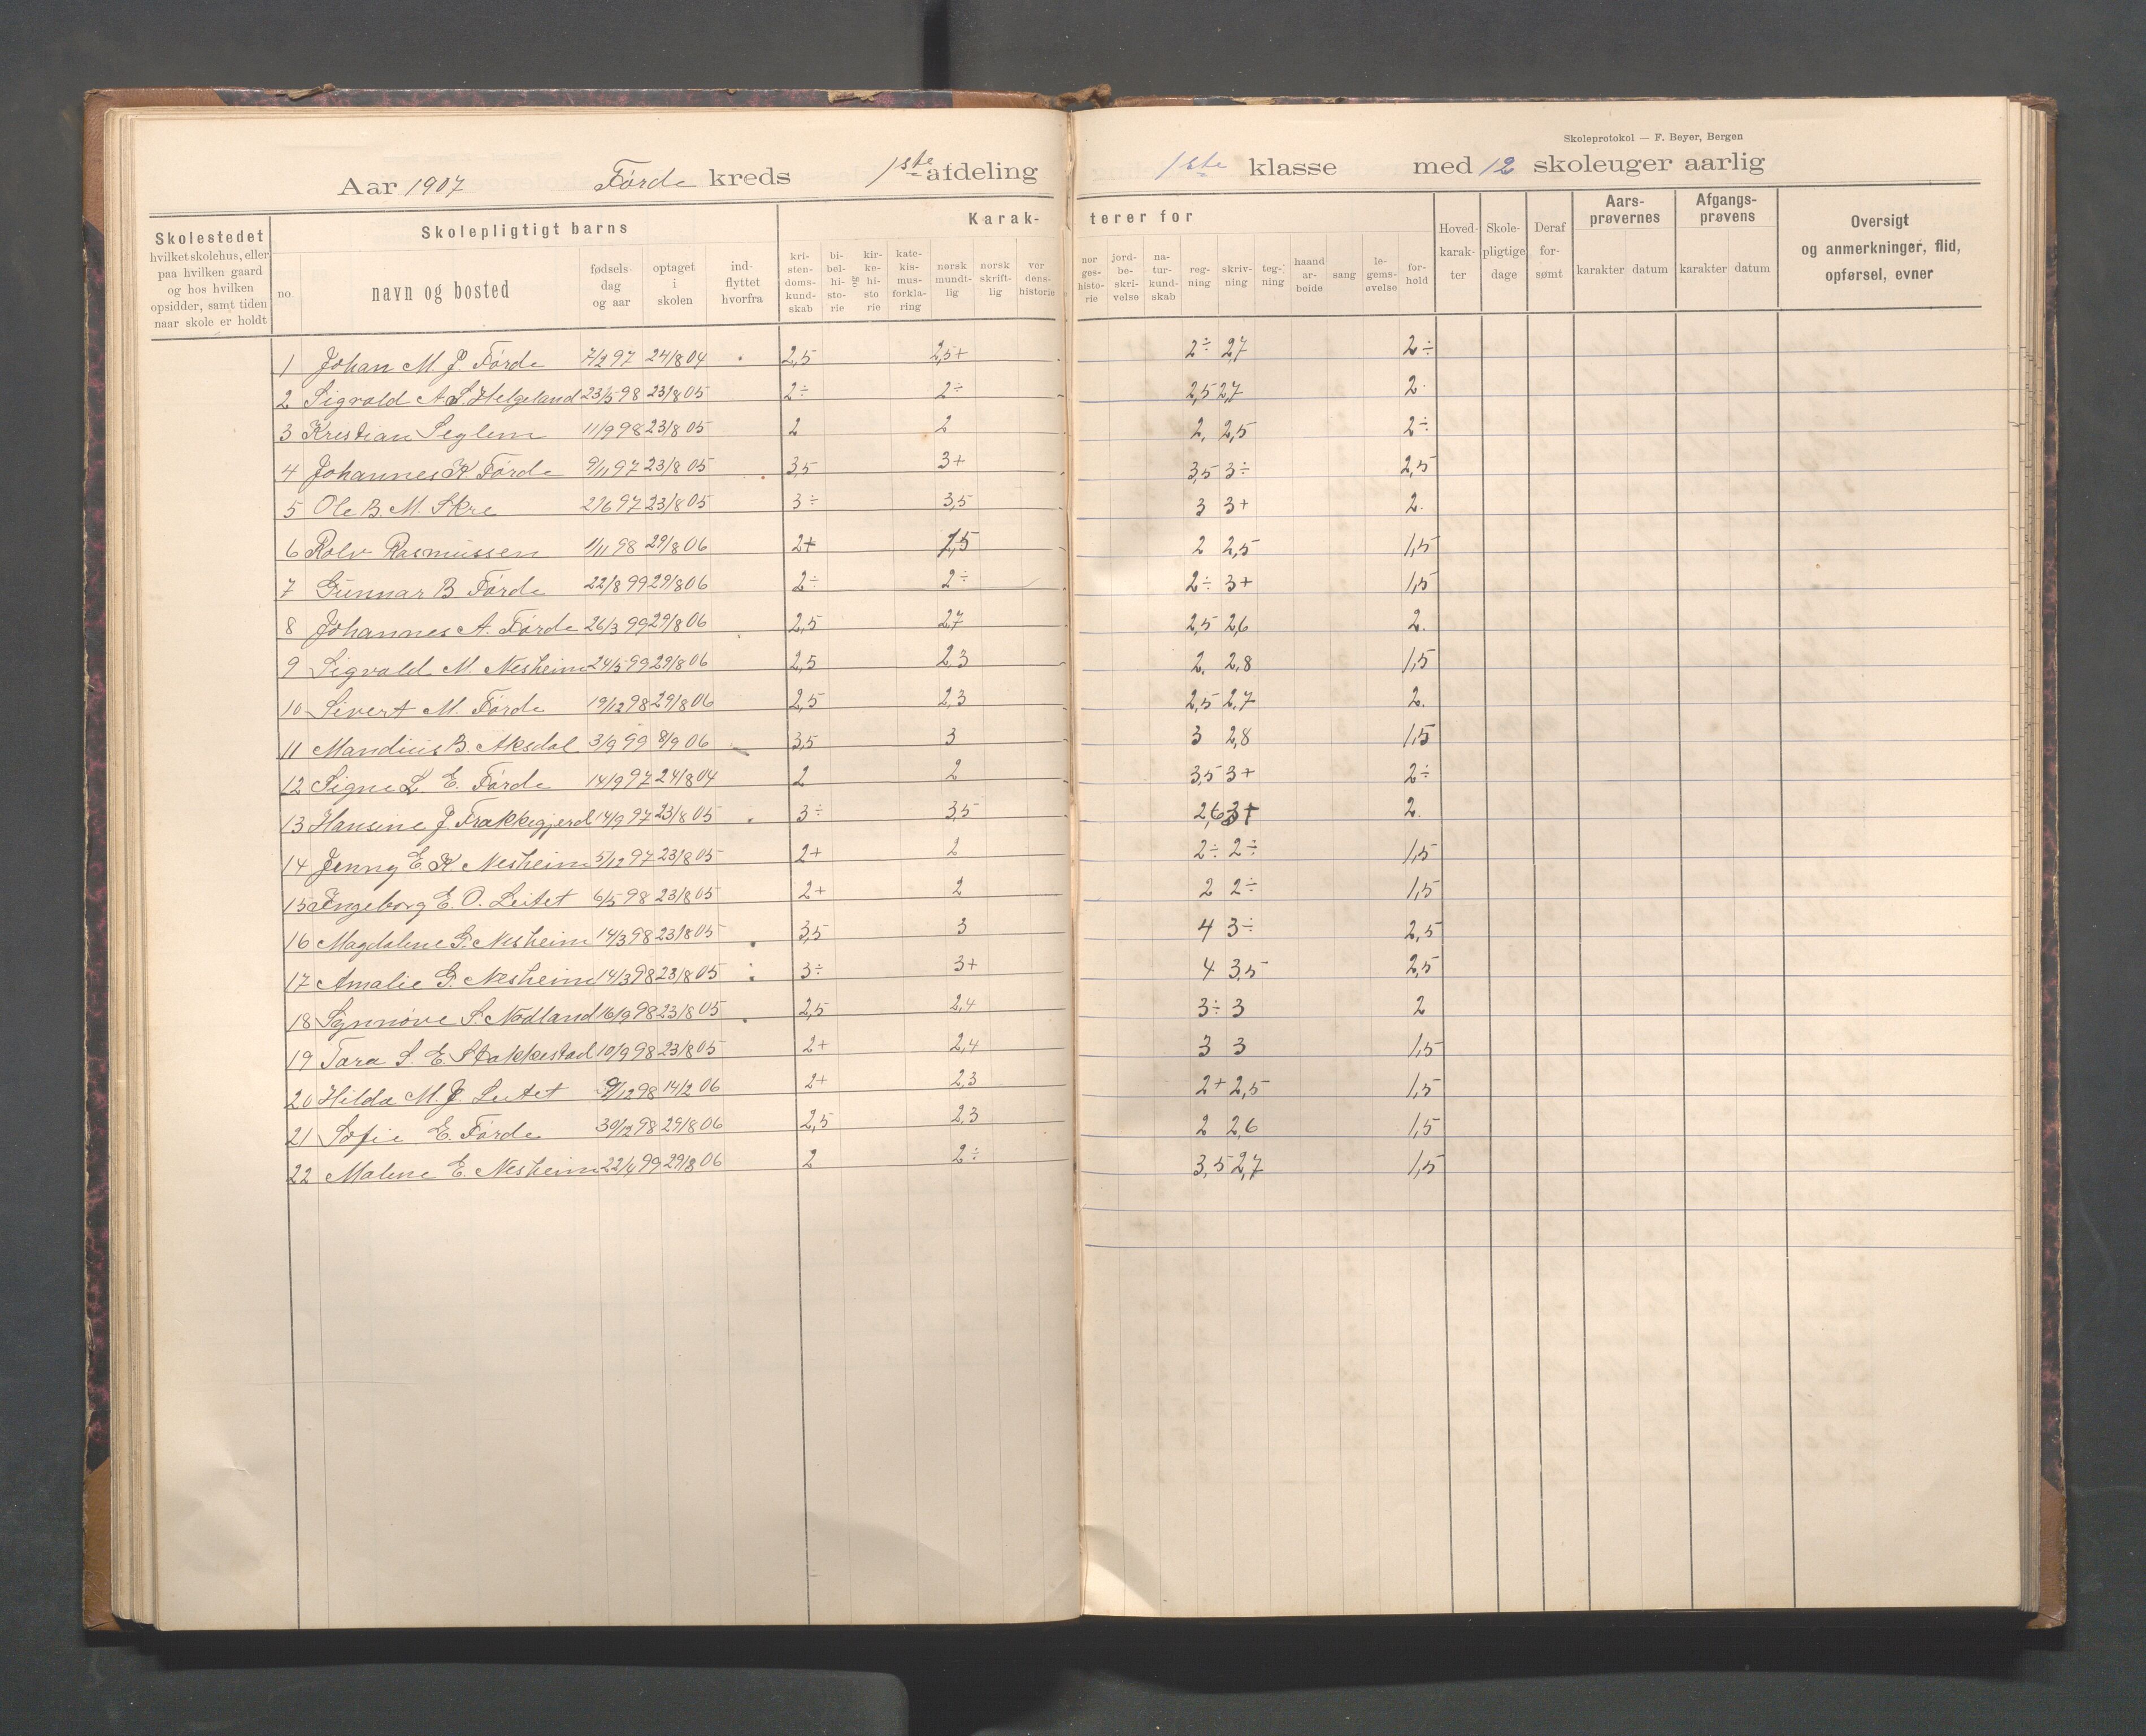 Skoleprotokol — F. Beyer, Bergen
Aar 1907 Förde kreds 1ste afdeling 1ste klasse med 12 skoleuger aarlig
Skolestedet
hvilket skolehus, eller
paa hvilken gaard
og hos hvilken
opsidder, samt tiden
naar skole er holdt
Skolepligtigt barns
no.
navn og bosted
fødsels-
dag
og aar
optaget
i
skolen
ind-
flyttet
hvorfra
Karak-
terer for
kri-
sten-
doms-
kund-
skab
bi-
bel-
hi-
sto-
rie
kir-
ke-
hi-
sto
rie
kate-
kis-
mus-
forkla-
ring
norsk
mundt-
lig
norsk
skrift-
lig
ver
dens-
historie
nor
ges-
histo-
rie
jord-
be-
skri-
velse
na-
tur-
kund-
skab
reg-
ning
skriv-
ning
teg-
ning
haand
ar-
beide
sang
le-
gems-
øvelse
for-
hold
Hoved-
karak-
ter
Skole-
pligtige
dage
Deraf
for-
sømt
Aars-
prøvernes
karakter datum
Afgangs-
prøvens
karakter datum
Oversigt
og anmerkninger, flid,
opførsel, evner
1 Johan M. J. Förde 7/2 97 24/8 04 2,5 2,5+ 2÷ 2,7 2÷
2 Sigvald A. S. Helgeland 23/5 98 23/8 05 2÷ 2÷ 2,5 2,7 2.
3 Kristian Seglem 11/9 98 23/8 05 2 2 2. 2,5 2÷
4 Johannes K. Förde 9/11 97 23/8 05 3,5 3+ 3,5 3÷ 2,5
5 Ole B. M. Skre 2/6 97 23/8 05 3÷ 3,5 3 3+ 2.
6 Rolv Rasmussen 1/11 98 29/8 06 2+ 2,5 2 2,5 1,5
7 Gunnar B. Förde 22/8 99 29/8 06 2÷ 2÷ 2÷ 3+ 1,5
8 Johannes A. Förde 26/3 99 29/8 06 2,5 2,7 2,5 2,6 2.
9 Sigvald M. Nesheim 24/5 99 29/8 06 2,5 2,3 2. 2,8 1,5
10 Sivert M. Förde 19/12 98 29/8 06 2,5 2,3 2,5 2,7 2.
11 Mandius B. Aksdal 3/9 99 8/9 06 3,5 3 3 2,8 1,5
12 Signe L. E. Förde 14/9 97 24/8 04 2 2 3,5 3+ 2÷
13 Hansine J. Frakkagjerd 14/9 97 23/8 05 3÷ 3,5 2,6 3+ 2.
14 Jenny E. K. Nesheim 5/12 97 23/8 05 2+ 2 2÷ 2÷ 1,5
15 Ingeborg E. O. Leitet 6/5 98 23/8 05 2+ 2 2 2÷ 1,5
16 Magdalene G. Nesheim 14/3 98 23/8 05 3,5 3 4 3÷ 2,5
17 Amalie G. Nesheim 14/3 98 23/8 05 3÷ 3+ 4 3,5 2,5
18 Synnöve S. Nodland 16/9 98 23/8 05 2,5 2,4 3÷ 3 2
19 Tora S. E. Stakkestad 10/9 98 23/8 05 2+ 2,4 3 3 1,5
20 Hilda M. J. Leitet 9/12 98 14/2 06 2+ 2,3 2+ 2,5 1,5
21 Sofie E. Förde 30/12 98 29/8 06 2,5 2,3 2 2,6 1,5
22 Malene E. Nesheim 22/4 99 29/8 06 2 2÷ 3,5 2,7 1,5